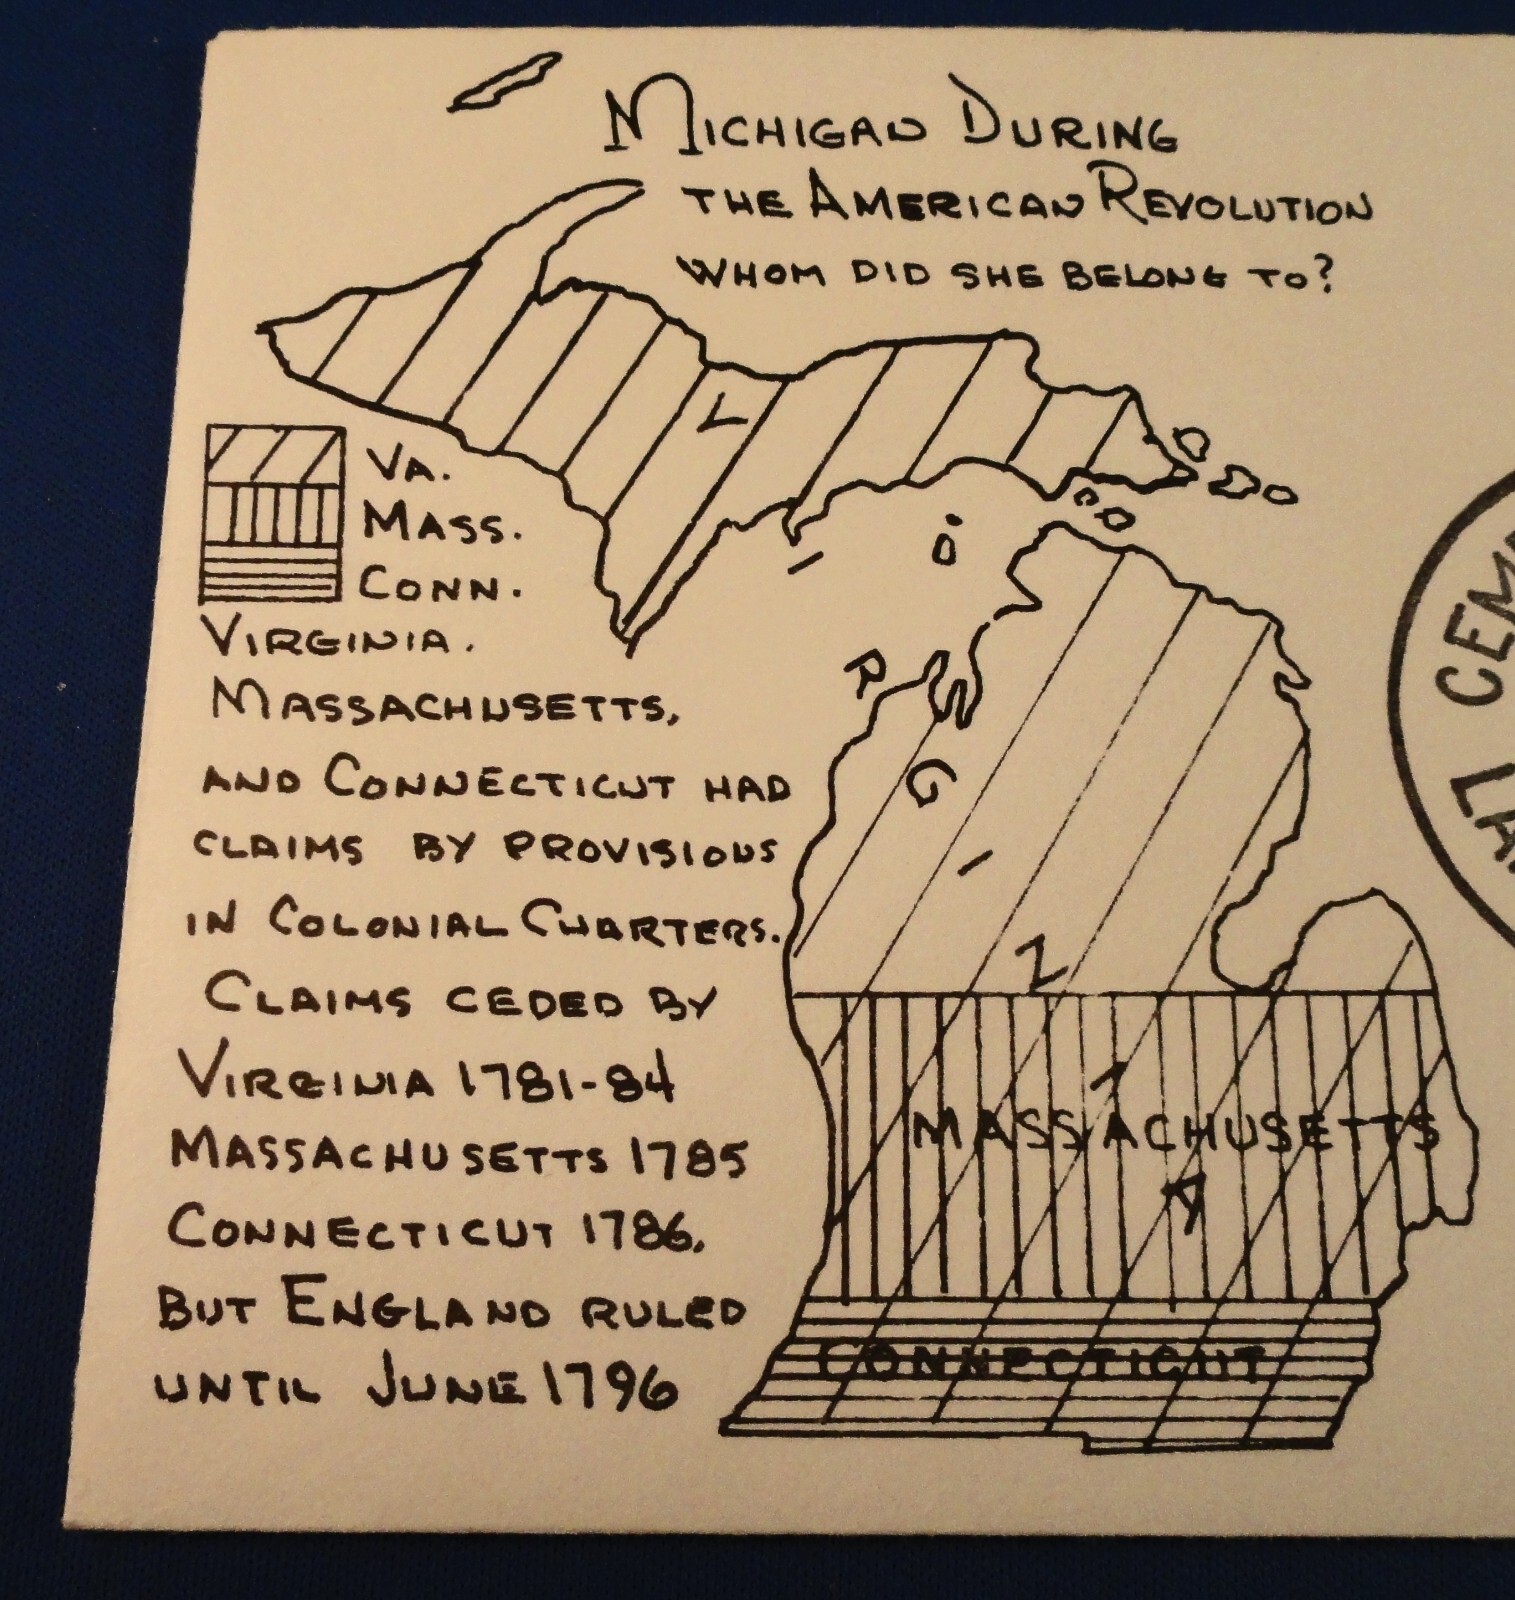 MICHIGAN DURING
THE AMERICAN REVOLUTION
WHOM DID SHE BELONG TO?
VA.
MASS.
CONN.
VIRGINIA.
MASSACHUSETTS,
AND CONNECTICUT HAD
CLAIMS BY PROVISIONS
IN COLONIAL CHARTERS.
CLAIMS CEDED BY
VIRGINIA 1781-84
MASSACHUSETTS 1785
CONNECTICUT 1786.
BUT ENGLAND RULED
UNTIL JUNE 1796
VIRGINIA
MASSACHUSETTS
CONNECTICUT